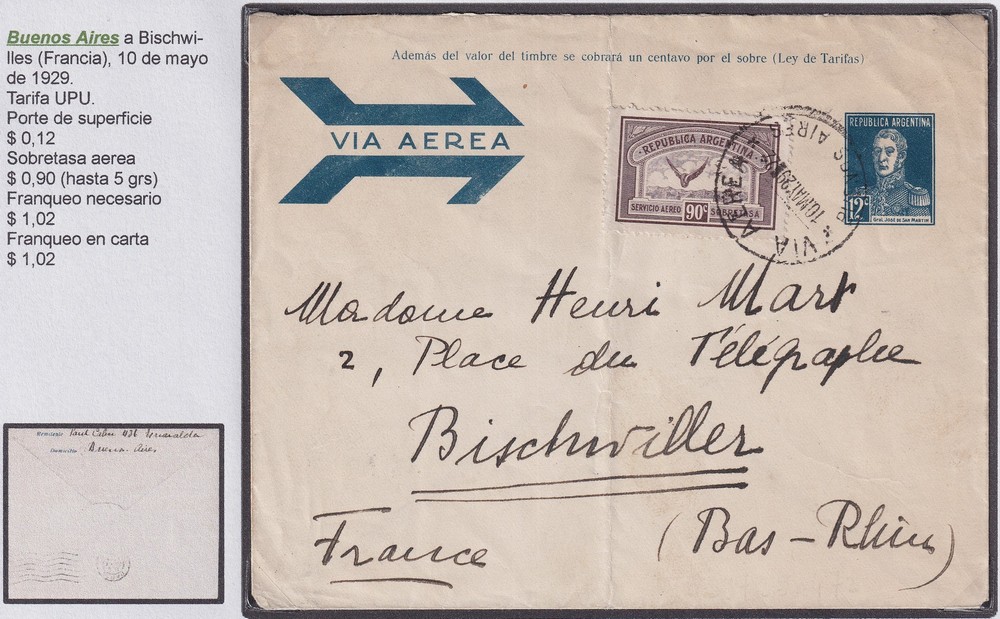 Buenos Aires a Bischwi-
lles (Francia), 10 de mayo
de 1929.
Tarifa UPU.
Porte de superficie
$ 0,12
Sobretasa aerea
$ 0,90 (hasta 5 grs)
Franqueo necesario
$ 1,02
Franqueo en carta
$ 1,02
Remitente 436 Esmeralda
Domicilio Buenos Aires
Además del valor del timbre se cobrará un centavo por el sobre (Ley de Tarifas)
VIA AEREA
REPUBLICA ARGENTINA
SERVICIO AEREO 90c SOBRETASA
BUENOS AIRES
10 MAY 29
VIA AEREA
REPUBLICA ARGENTINA
12c
Gral. José de San Martin
Madame Henri Marx
2, Place du Télégraphe
Bischwiller
France (Bas-Rhin)